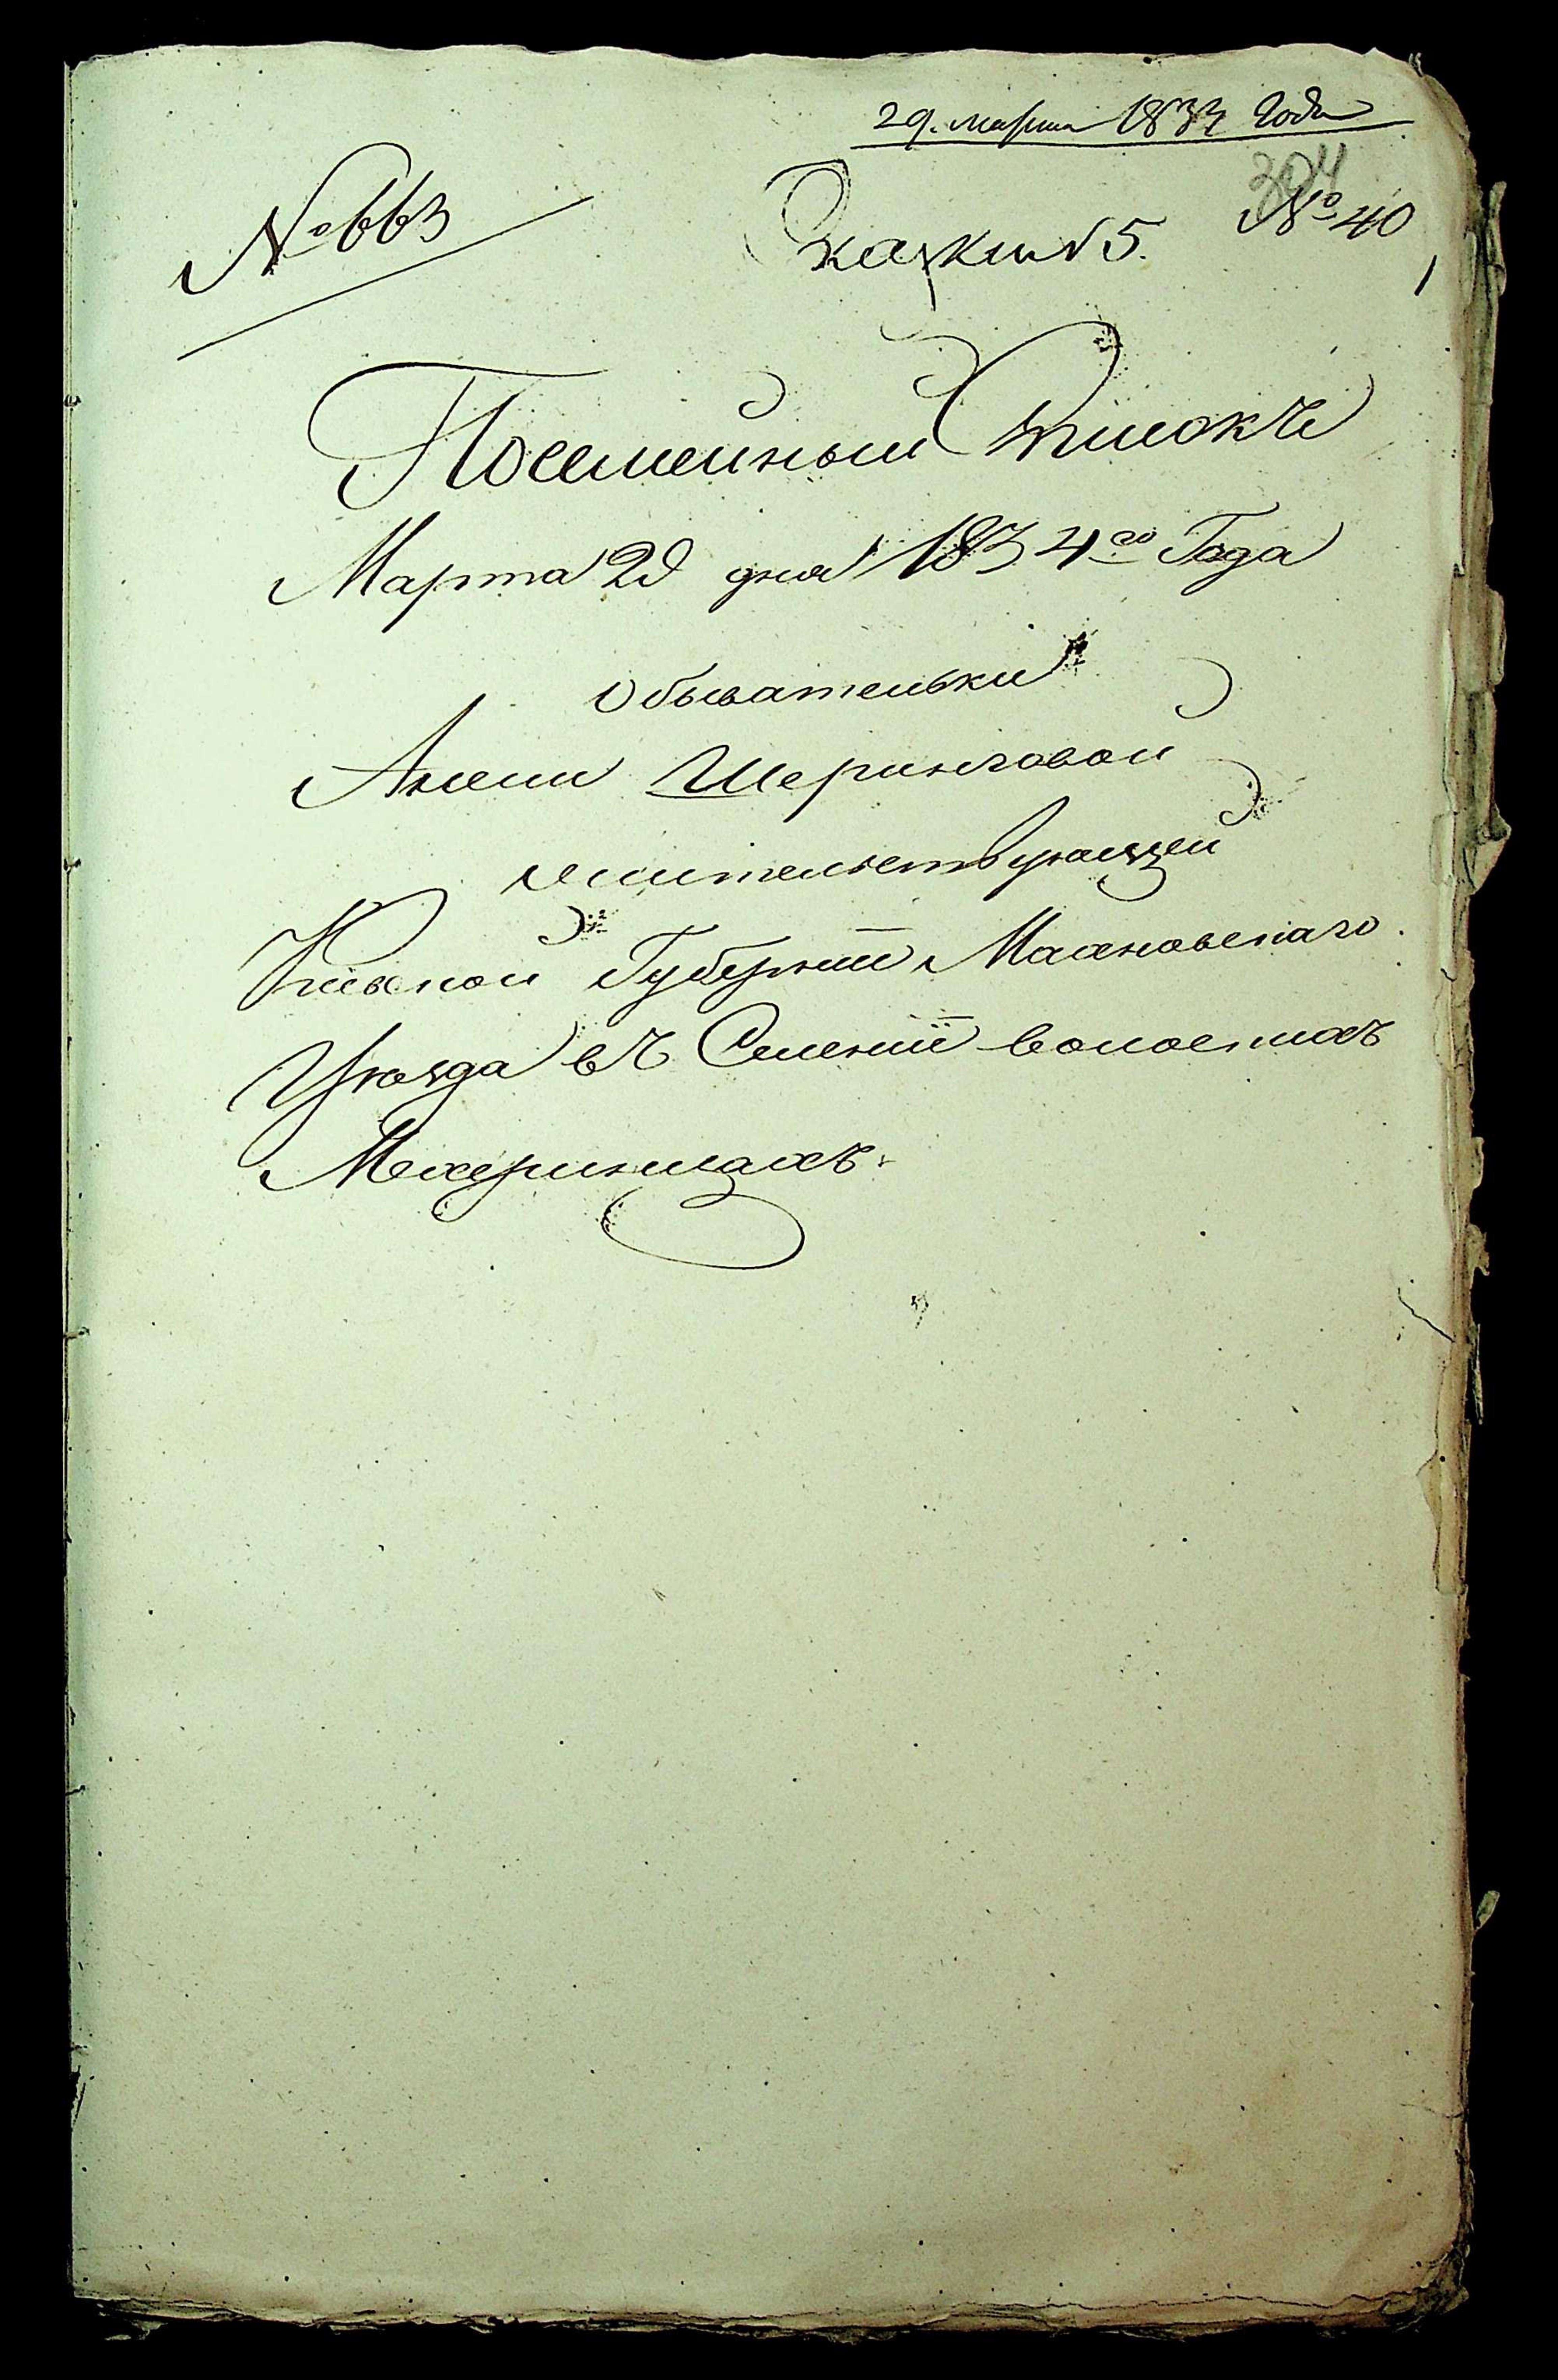 29. марта 1834 года
304
№ 663
Сказки 5.
№ 40
Посемейный Списокъ
Марта 2д дня 1834го Года
Обывательки
Анели Шеринговой
жительствующей
Кіевской Губерніи Махновскаго
Уѣзда въ Селеніи волостихъ
Махеринцахъ.